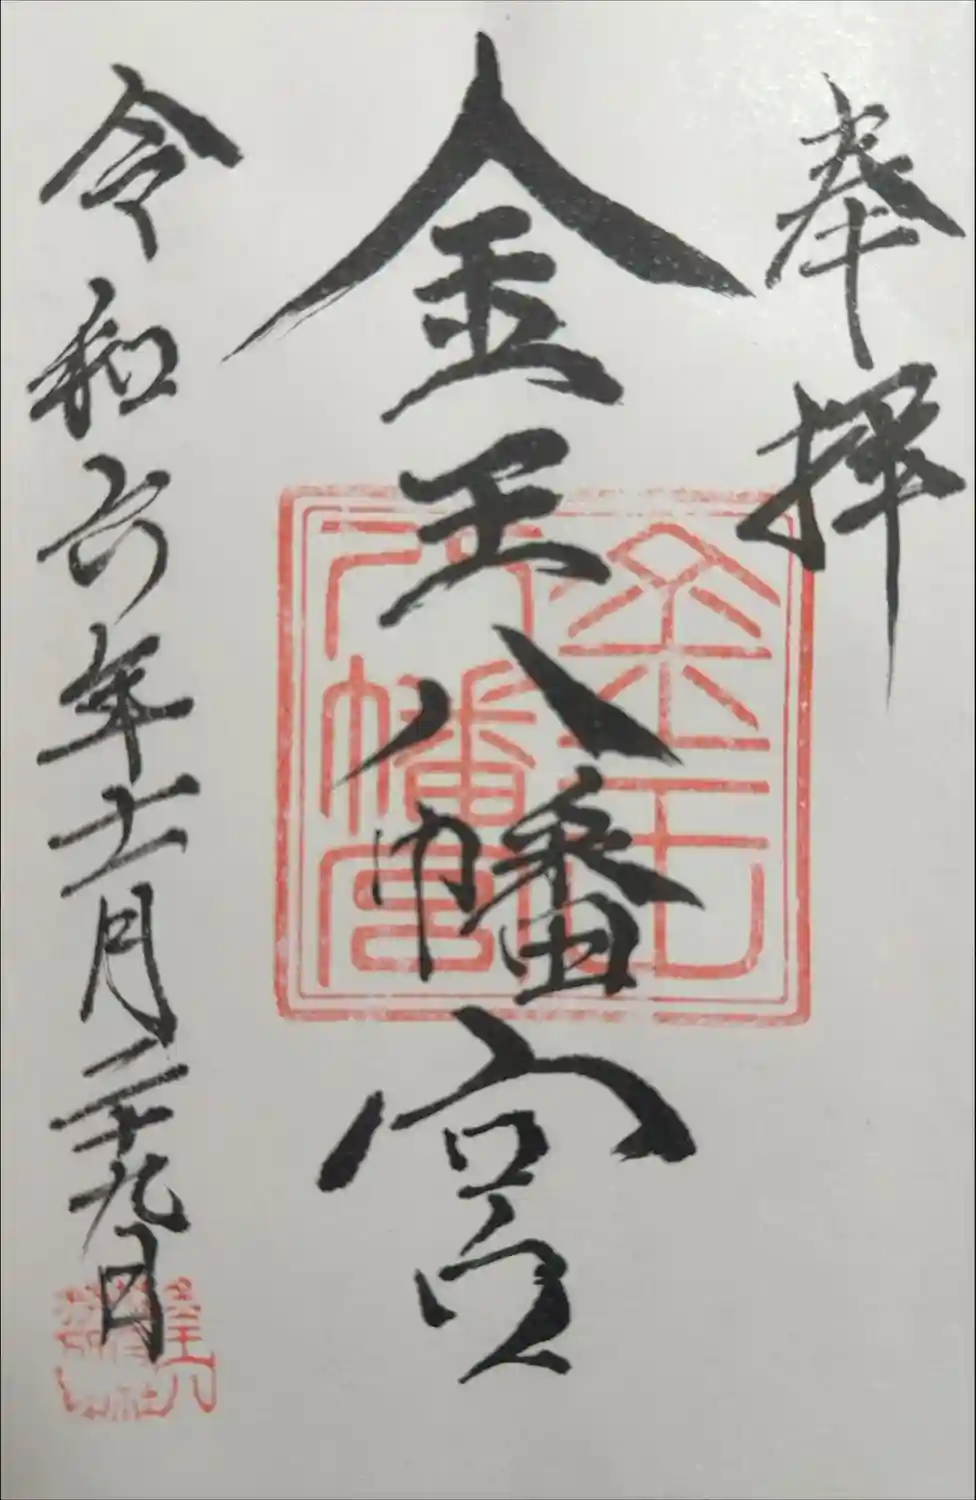 奉拝
金王八幡宮
金王八幡宮
令和六年十一月二十九日